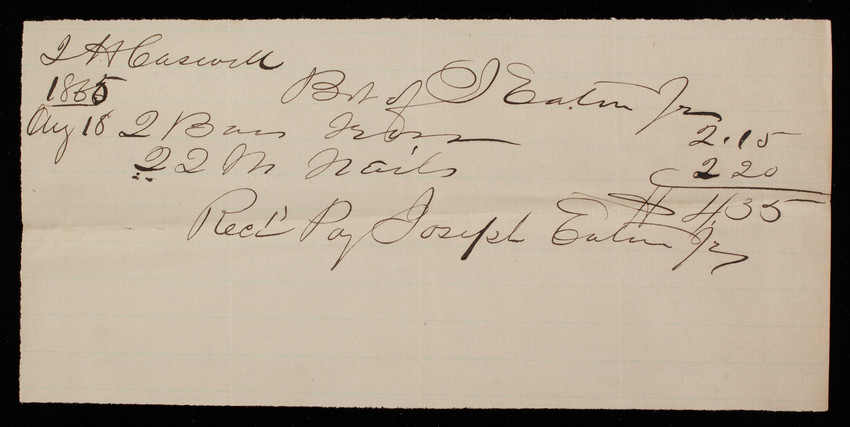 T H Caswell
1865 Bot of J Eaton Jr
Aug 18 2 Bars Iron 2.15
22 lb Nails 2 20
$ 4.35
Rec'd Pay Joseph Eaton Jr